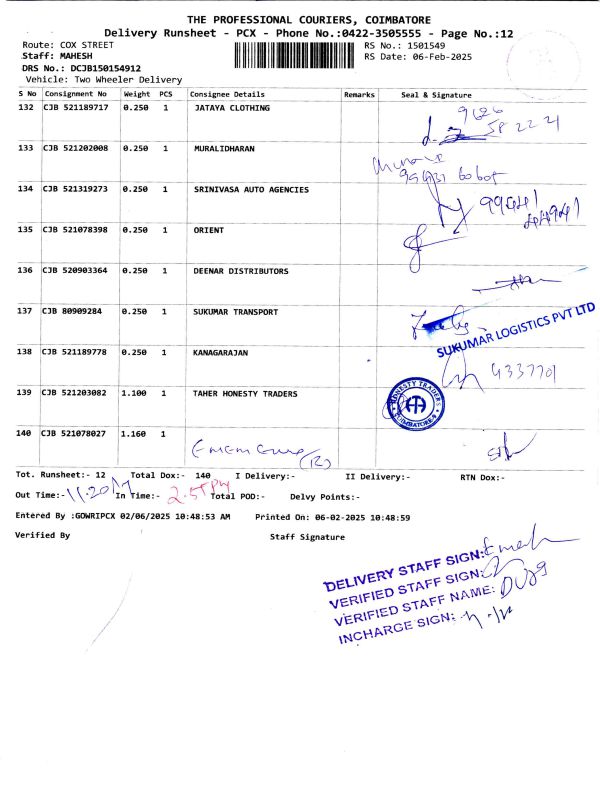 THE PROFESSIONAL COURIERS, COIMBATORE
Delivery Runsheet - PCX - Phone No.:0422-3505555 - Page No.:12
Route: COX STREET RS No.: 1501549
Staff: MAHESH RS Date: 06-Feb-2025
DRS No.: DCJB150154912
Vehicle: Two Wheeler Delivery
S No Consignment No Weight PCS Consignee Details Remarks Seal & Signature
132 CJB 521189717 0.250 1 JATAYA CLOTHING 9626
58 22 21
133 CJB 521202008 0.250 1 MURALIDHARAN
134 CJB 521319273 0.250 1 SRINIVASA AUTO AGENCIES
99441
44941
135 CJB 521078398 0.250 1 ORIENT
136 CJB 520903364 0.250 1 DEENAR DISTRIBUTORS
137 CJB 80909284 0.250 1 SUKUMAR TRANSPORT
SUKUMAR LOGISTICS PVT LTD
138 CJB 521189778 0.250 1 KANAGARAJAN
4337701
139 CJB 521203082 1.100 1 TAHER HONESTY TRADERS
HONESTY TRADERS
COIMBATORE
140 CJB 521078027 1.160 1
(12)
Tot. Runsheet:- 12 Total Dox:- 140 I Delivery:- II Delivery:- RTN Dox:-
Out Time:- 11.20 In Time:- 2.57PM Total POD:- Delvy Points:-
Entered By :GOWRIPCX 02/06/2025 10:48:53 AM Printed On: 06-02-2025 10:48:59
Verified By Staff Signature
DELIVERY STAFF SIGN:
VERIFIED STAFF SIGN:
VERIFIED STAFF NAME:
INCHARGE SIGN: